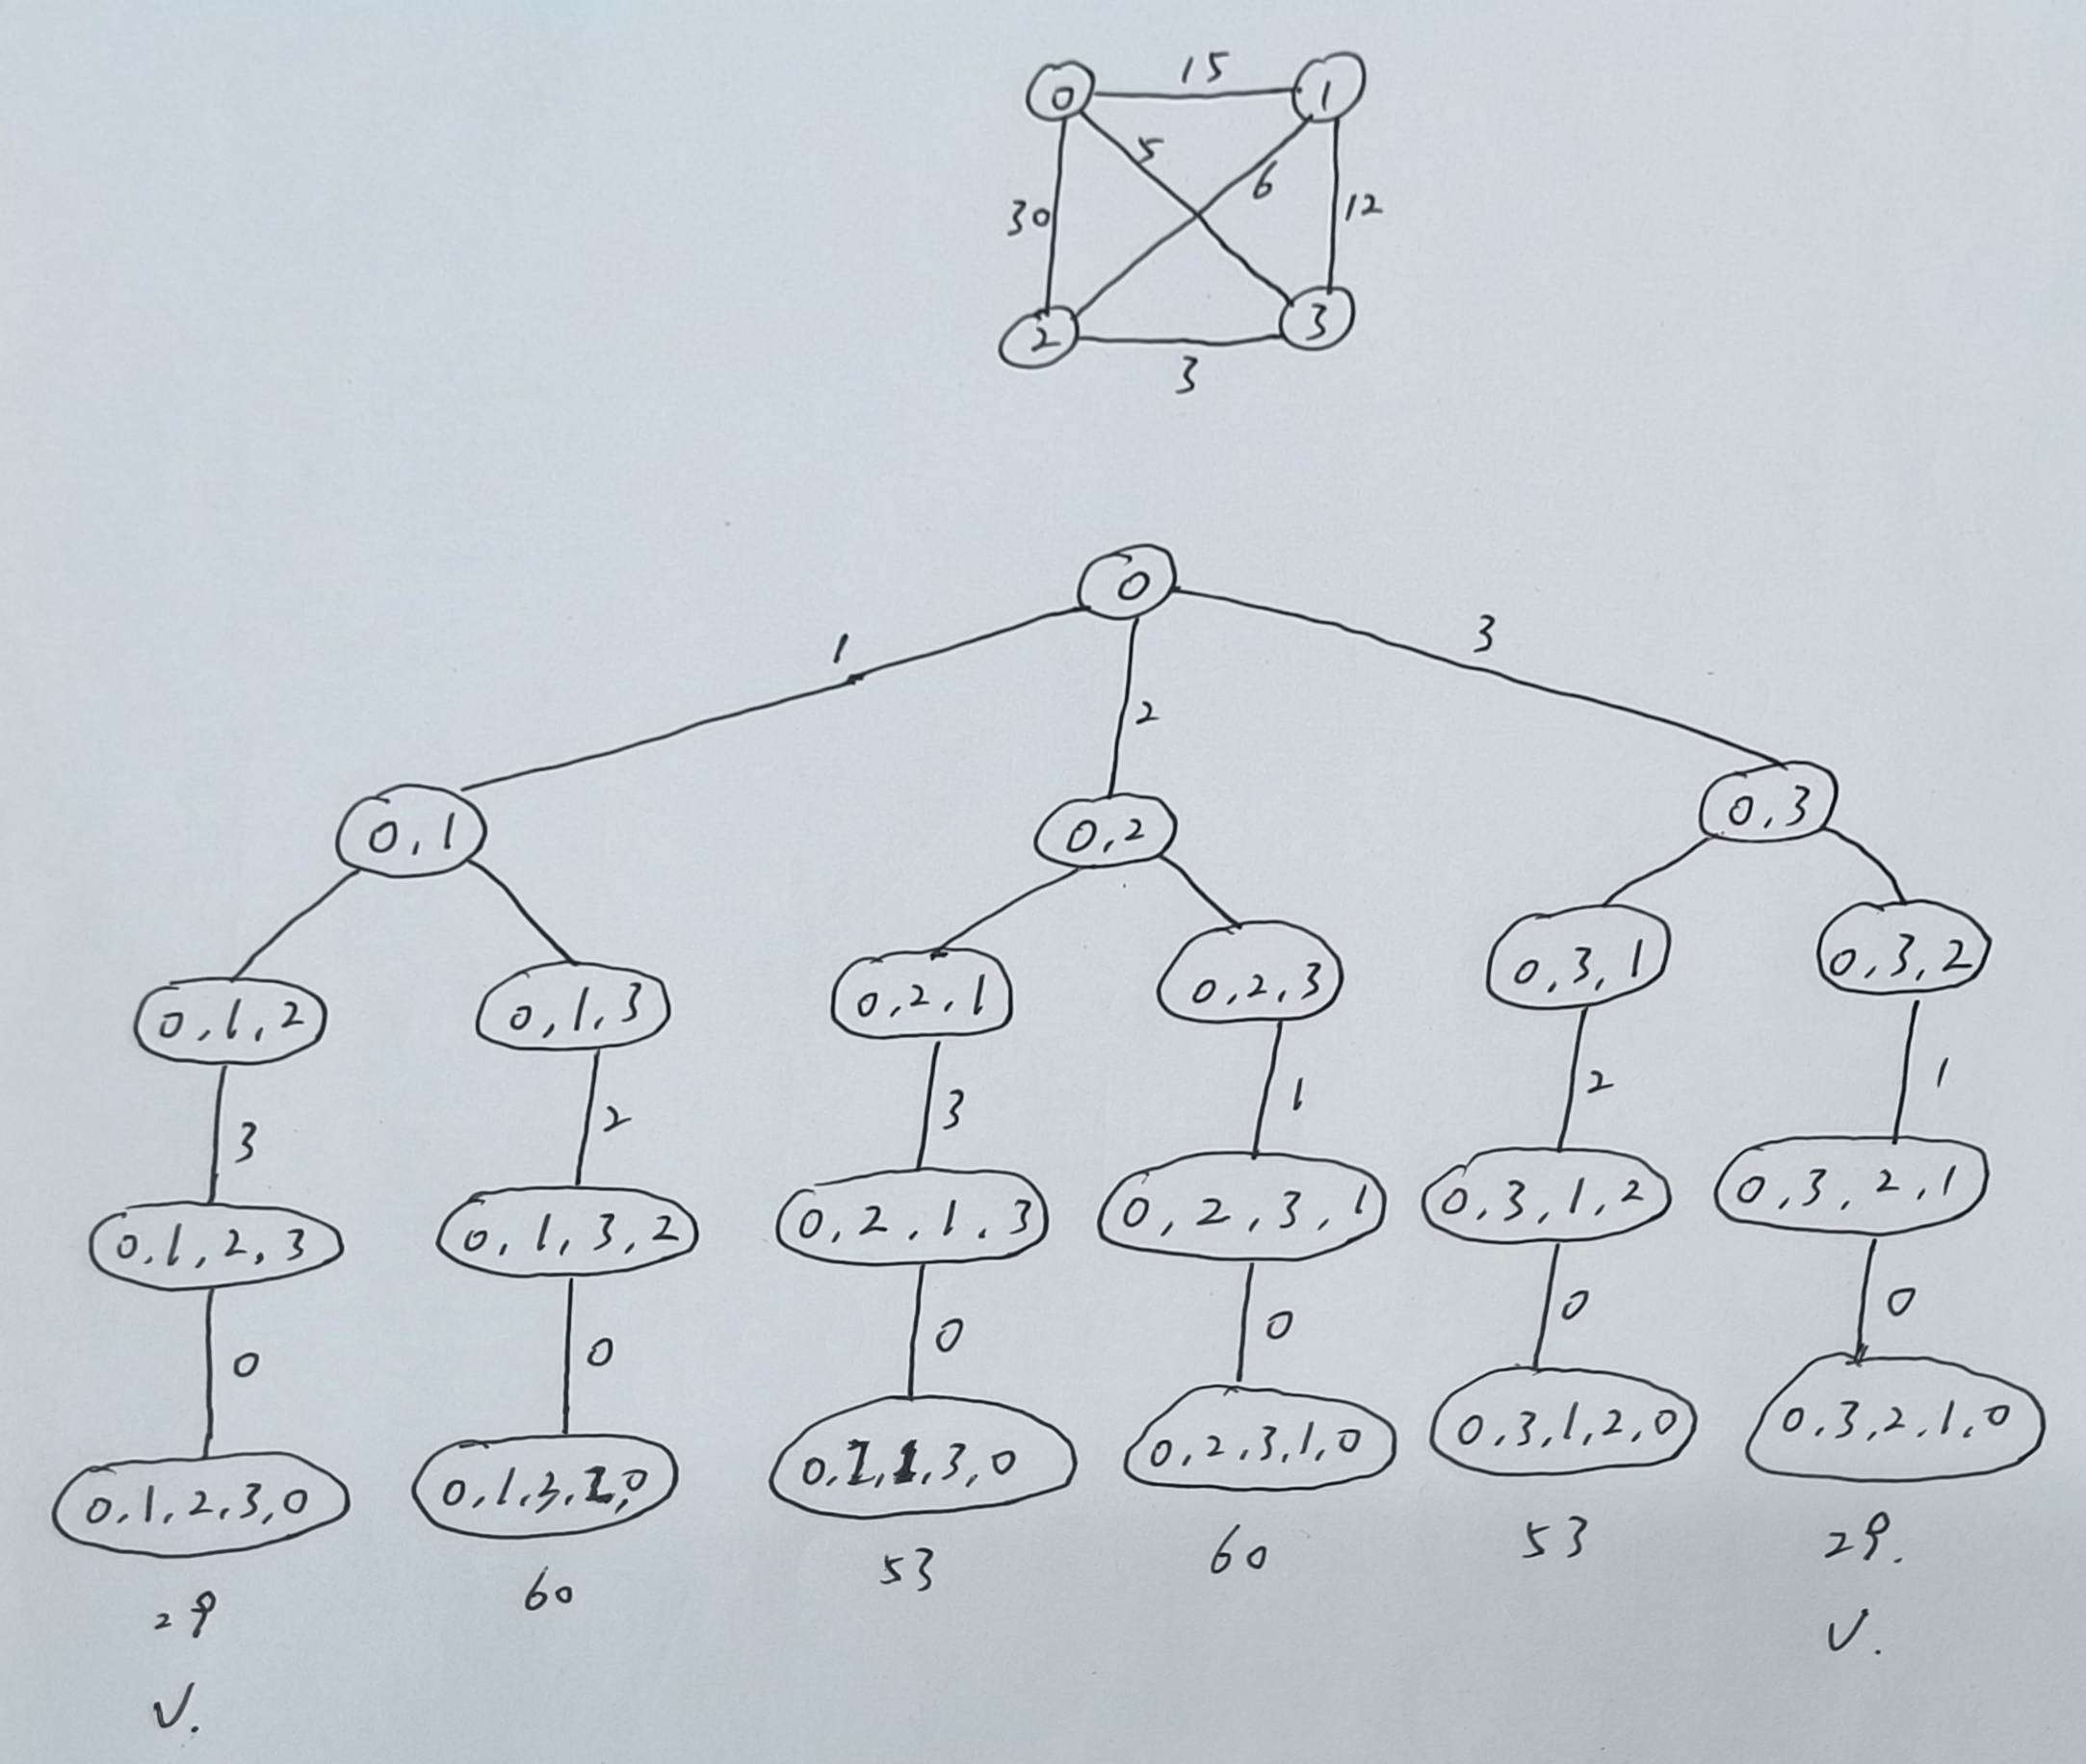 15
0 1
5
6
30
12
2 3
3
0
1
3
2
0,1
0,2
0,3
0,1,2
0,1,3
0,2,1
0,2,3
0,3,1
0,3,2
3
2
3
1
2
1
0,1,2,3
0,1,3,2
0,2,1,3
0,2,3,1
0,3,1,2
0,3,2,1
0
0
0
0
0
0
0,1,2,3,0
0,1,3,2,0
0,2,1,3,0
0,2,3,1,0
0,3,1,2,0
0,3,2,1,0
29
60
53
60
53
29.
V.
V.